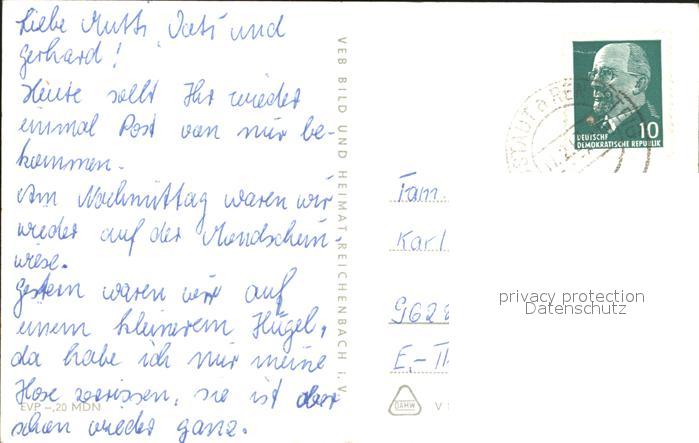 Liebe Mutti, Vati und
Gerhard!
Heute sollt Ihr wieder
einmal Post von mir be-
kommen.
Am Nachmittag waren wir
wieder auf der Mondschein-
wiese.
Gestern waren wir auf
einem kleinerem Hügel,
da habe ich mir meine
Hose zerrissen, sie ist aber
schon wieder ganz.
EVP -,20 MDN
VEB BILD UND HEIMAT REICHENBACH i. V.
DEUTSCHE
DEMOKRATISCHE REPUBLIK
10
Fam.
Karl
9628
E.-Th
DAMW
V
privacy protection
Datenschutz